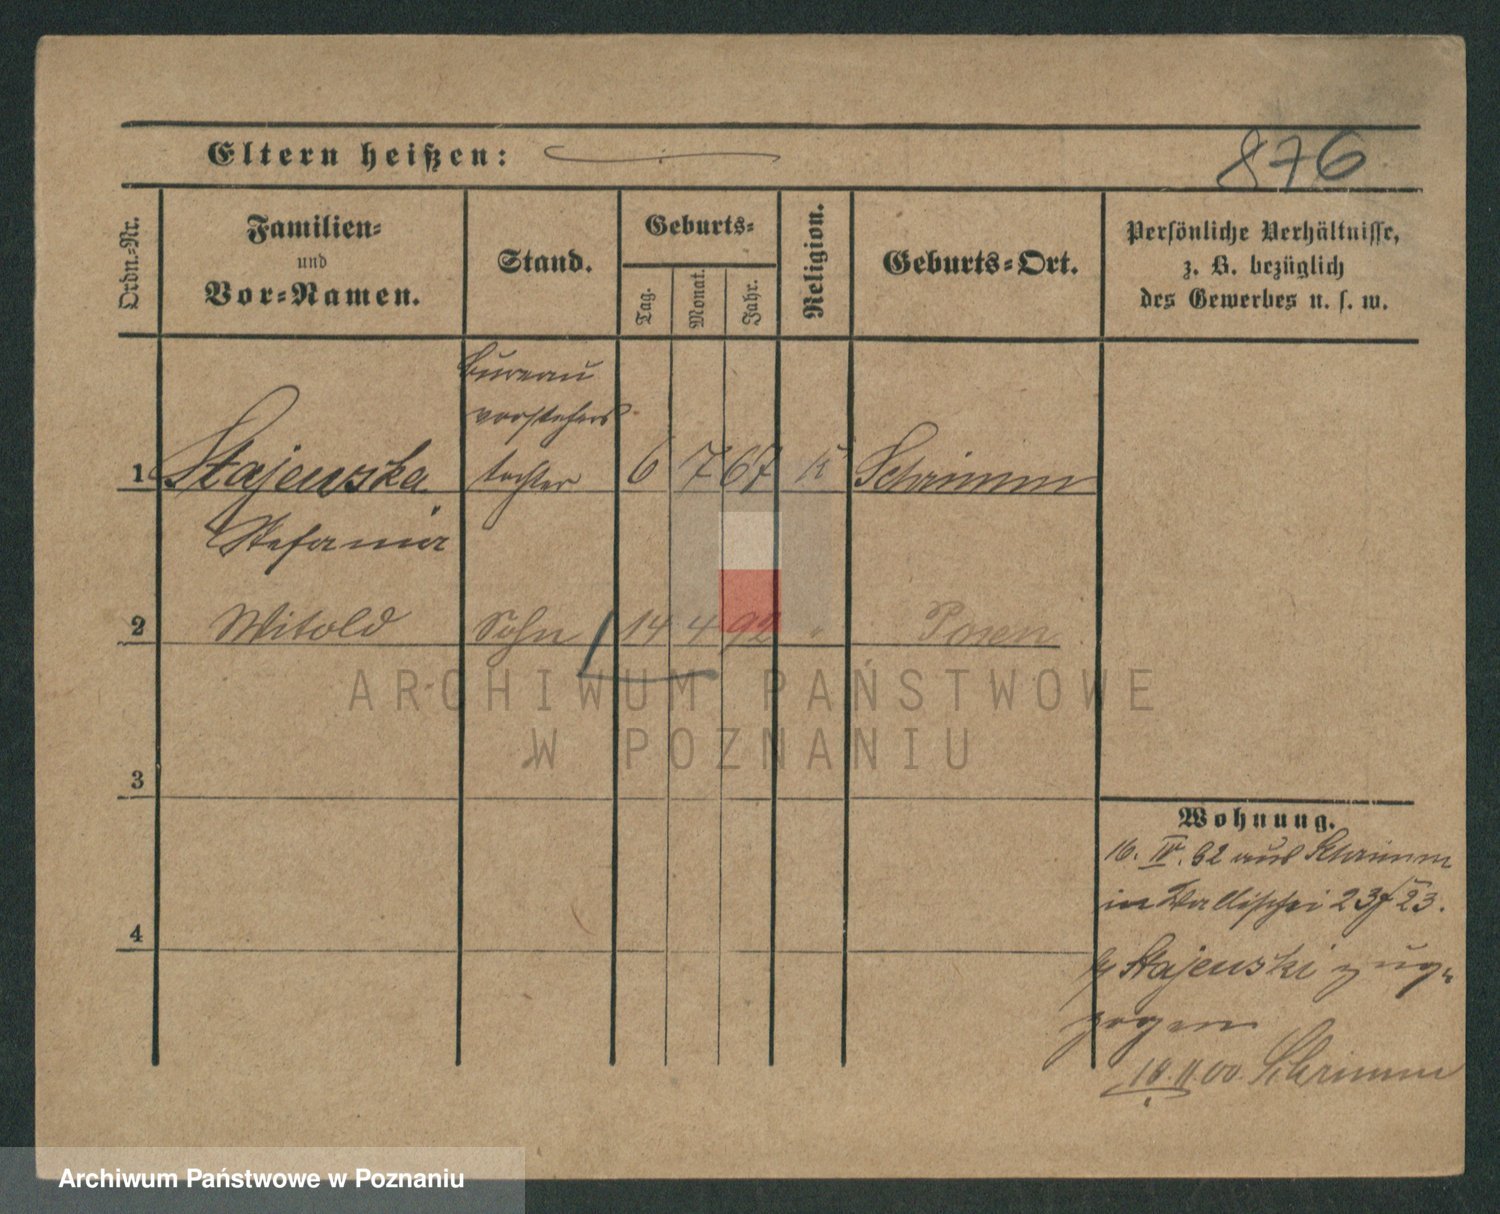 Eltern heißen:
876
Ordn.-Nr.
Familien-
und
Vor-Namen.
Stand.
Geburts-
Tag.
Monat.
Jahr.
Religion.
Geburts-Ort.
Persönliche Verhältnisse,
z. B. bezüglich
des Gewerbes u. s. w.
Bureau
vorstehers
1 Stajewska tochter 6 7 67 K Schrimm
Stefania
2 Witold Sohn 14 4 92 " Posen
ARCHIWUM PAŃSTWOWE
W POZNANIU
3
4
Wohnung.
16. IV. 92 aus Schrimm
in Wallischei 23
Stajewski zug-
zogen
18.11.00. Schrimm
Archiwum Państwowe w Poznaniu